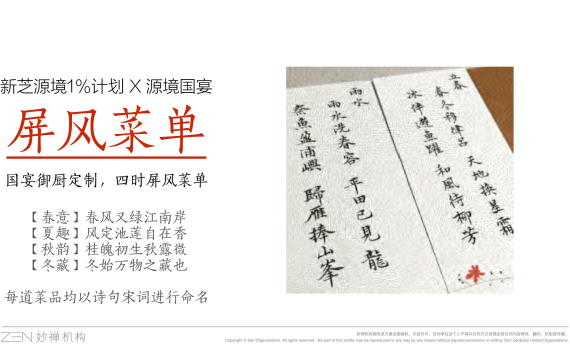 新芝源境1%计划 X 源境国宴
屏风菜单
国宴御厨定制，四时屏风菜单
【春意】春风又绿江南岸
【夏趣】风定池莲自在香
【秋韵】桂魄初生秋露微
【冬藏】冬始万物之藏也
每道菜品均以诗句宋词进行命名
立春
春冬移律吕 天地换星霜
冰伴遊魚躍 和風待柳芳
雨水
雨水洗春容 平田已見龍
祭魚盈浦嶼 歸雁捧山峯
ZEN 妙禅机构
Copyright © Zen Organizations. All rights reserved. No part of this profile may be reproduced in any way by any means without express permission in writing from Zen&Zen United Organizations.